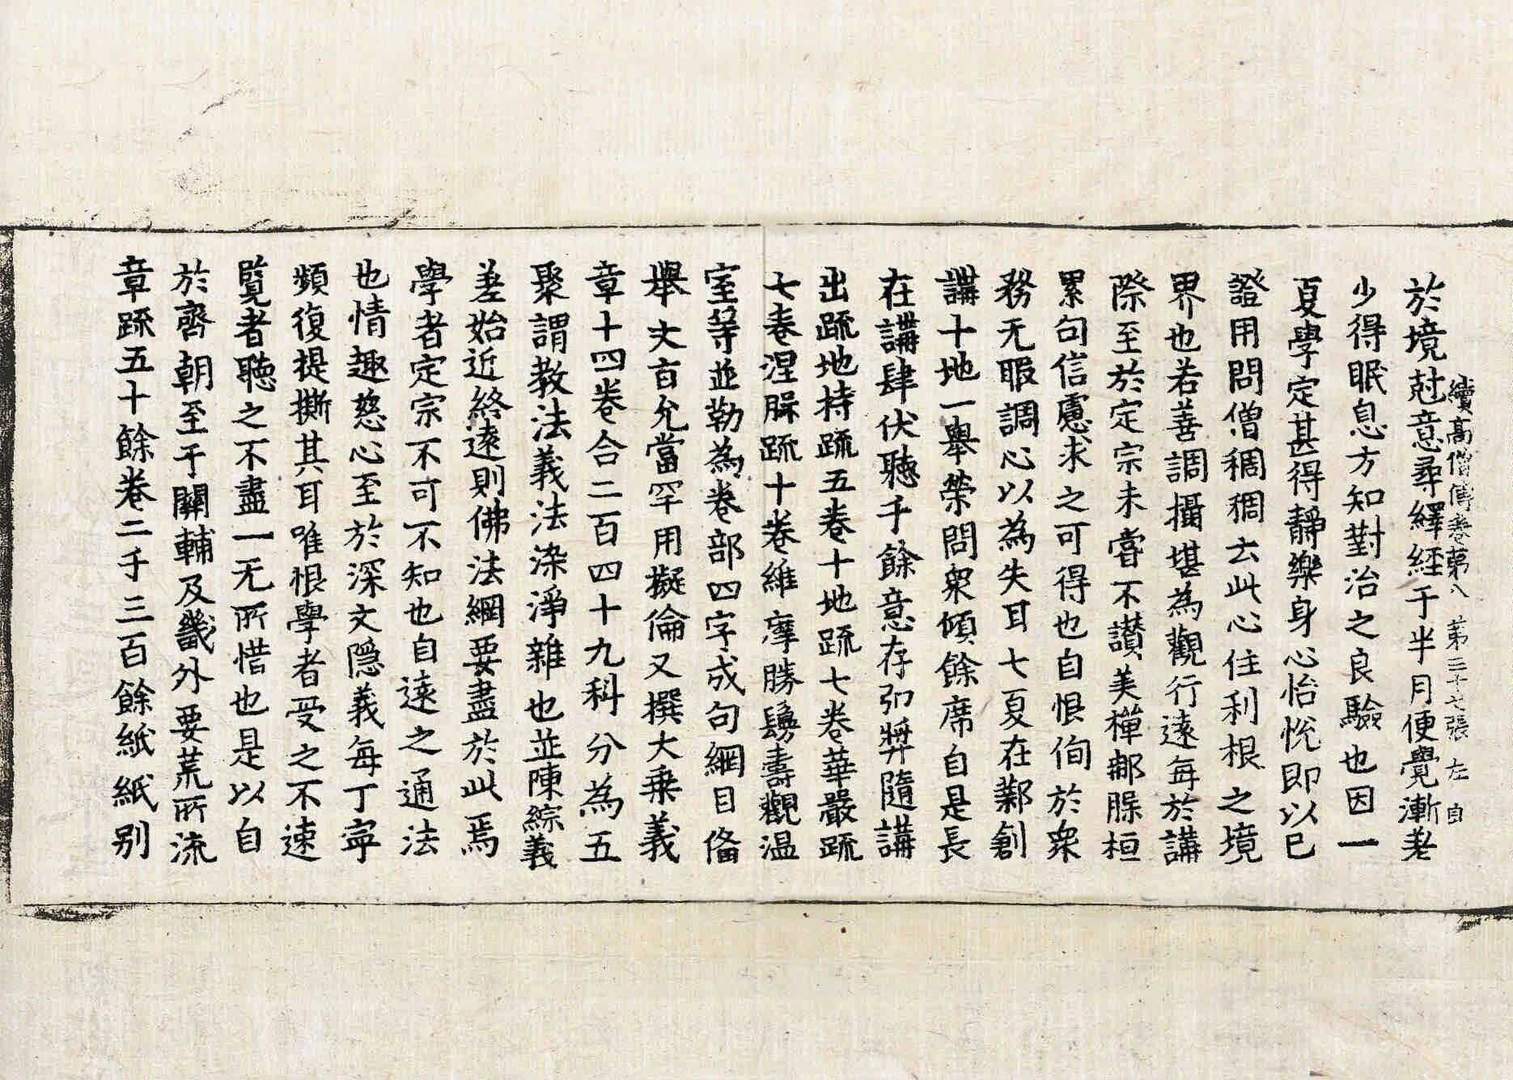 續高僧傳卷第八　第三十七張　左　自
於境尅意尋繹經于半月便覺漸老
少得眠息方知對治之良驗也因一
夏學定甚得靜樂身心怡悅即以巳
證用問僧稠稠云此心住利根之境
界也若善調攝堪為觀行遠每於講
際至於定宗未嘗不讃美禪那𦠆桓
累句信慮求之可得也自恨徇於衆
務无暇調心以為失耳七夏在鄴創
講十地一舉榮問衆傾餘席自是長
在講肆伏聽千餘意存弘奬隨講
出䟽地持䟽五卷十地䟽七卷華嚴䟽
七卷涅槃䟽十卷維摩勝鬘壽觀温
室等並勒為卷部四字成句綱目俻
舉文旨允當罕用擬倫又撰大乗義
章十四卷合二百四十九科分為五
聚謂教法義法染淨雜也並陳綜義
差始近終遠則佛法綱要盡於此焉
學者定宗不可不知也自遠之通法
也情趣慈心至於深文隱義每丁寜
頻復提撕其耳唯恨學者受之不速
覧者聽之不盡一无所惜也是以自
於齊朝至于關輔及畿外要荒所流
章䟽五十餘卷二千三百餘紙紙别